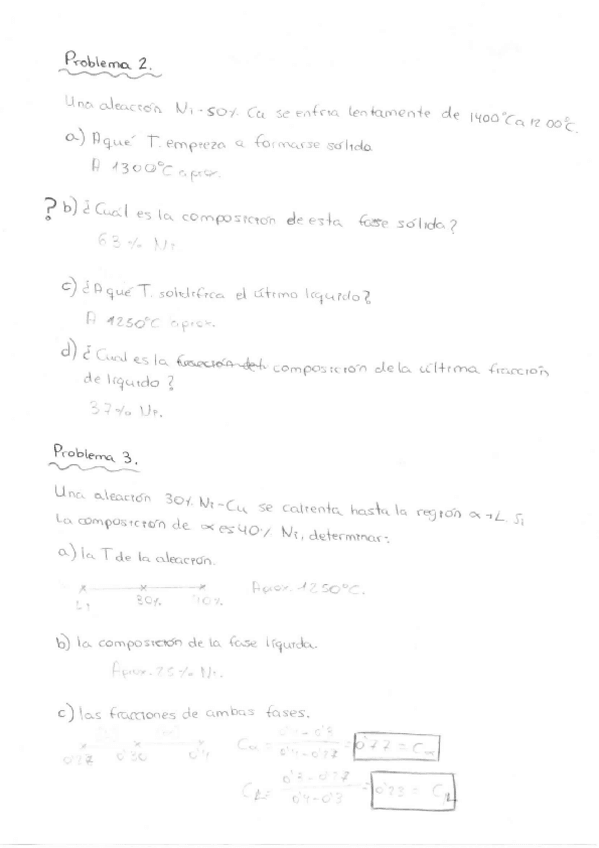 Problema 2.
Una aleación Ni-50% Cu se enfria lentamente de 1400°C a 1200°C.
a) A qué T. empieza a formarse sólido
A 1300°C aprox.
? b) ¿Cuál es la composición de esta fase sólida?
63% Ni.
c) ¿A qué T. solidifica el último líquido?
A 1250°C aprox.
d) ¿Cuál es la composición de la última fracción
de líquido?
37% Ni.
Problema 3.
Una aleación 30% Ni-Cu se calienta hasta la región α+L. Si
la composición de α es 40% Ni, determinar:
a) la T de la aleación.
30% 40% Aprox. 1250°C.
b) la composición de la fase líquida.
Aprox. 25% Ni.
c) las fracciones de ambas fases.
0'30 0'4
0'77 = Cα
0'3 - 0'27
0'4 - 0'3
0'23 =